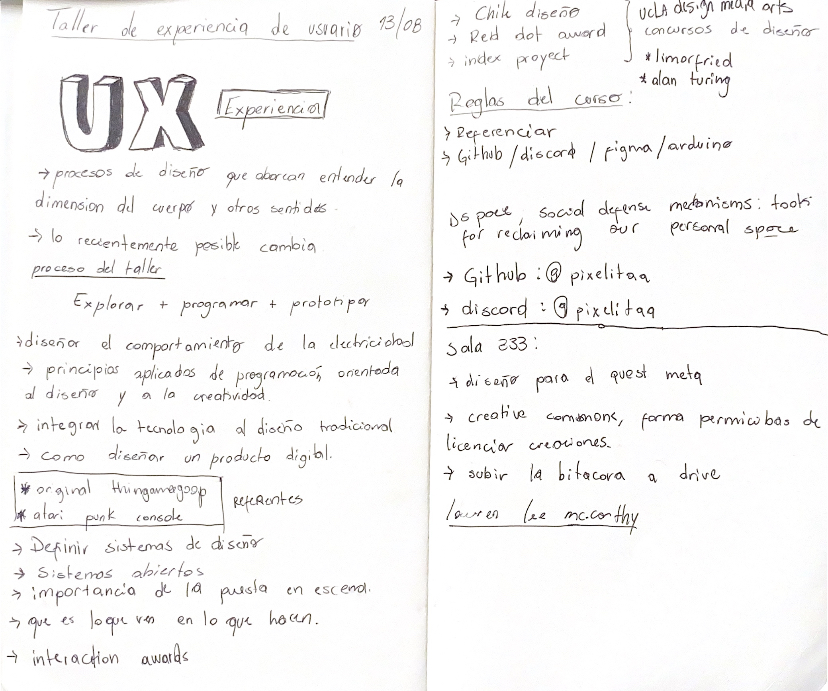 Taller de experiencia de usuario 13/08
UX Experiencia
→ procesos de diseño que abarcan entender la
dimension del cuerpo y otros sentidos.
→ lo recientemente posible cambia
proceso del taller
Explorar + programar + prototipar
→ diseñar el comportamiento de la electricidad
→ principios aplicados de programación orientada
al diseño y a la creatividad.
→ integrar la tecnologia al diseño tradicional
→ como diseñar un producto digital.
* orginal thingamagoop
* atari punk console
REFERENTES
→ Definir sistemas de diseño
→ Sistemas abiertos
→ importancia de la puesta en escena.
→ que es lo que ven en lo que hacen.
→ interaction awards
→ Chile diseño
→ Red dot award
→ index proyect
UCLA design media arts
concursos de diseño
* limorfried
* alan turing
Reglas del curso:
→ Referenciar
→ Github / discord / figma / arduino
space, social defense mechanisms: tools
for reclaiming our personal space
→ Github: @pixelitaa
→ discord: @pixelitaa
Sala 233:
→ diseño para el quest meta
→ creative commons, forma de
licenciar creaciones.
→ subir la bitacora a drive
lauren lee mc.carthy